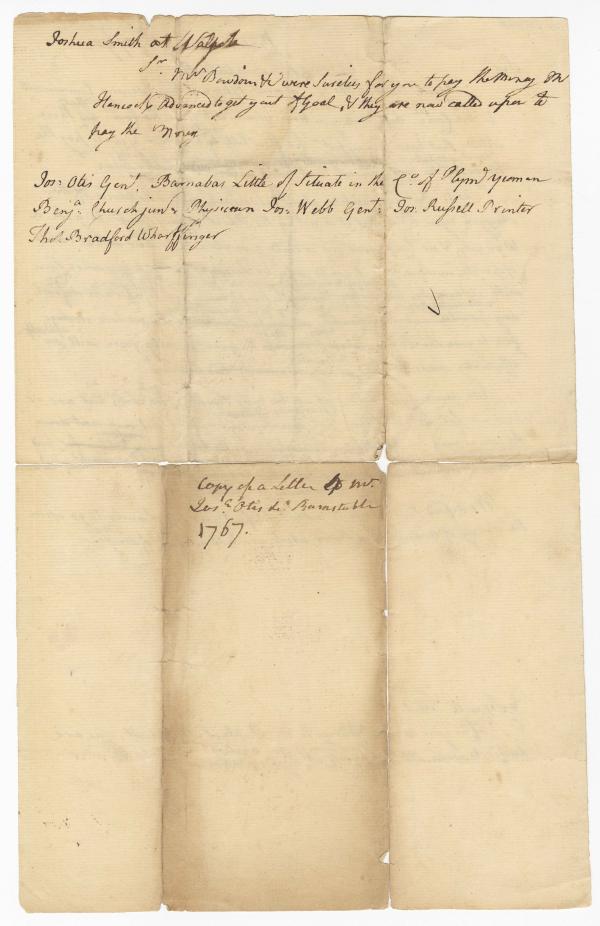 Joshua Smith at Walpole
Sr. Mr. Bowdoin & were Sureties for you to pay the Money Mr
Hancock Advanced to get you out of Goal, & they are now called upon to
pay the Money
Jos: Otis Gent. Barnabas Little of Situate in the Co. of Plymo yeoman
Benja. Church junr. Physician Jos: Webb Gent: Jos. Russell Printer
Thos. Bradford Wharffinger
Copy of a Letter to Mr.
Josa. Otis Barnstable
1767.